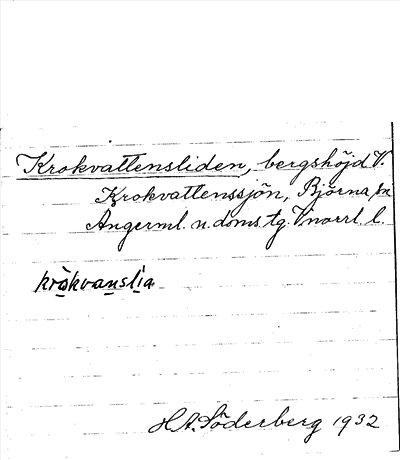 Krokvattensliden, bergshöjd V.
Krokvattenssjön, Björna sn
Ångerml. n. doms. tg. Vnorrl. l.
kròkvanslia
H.A. Söderberg 1932